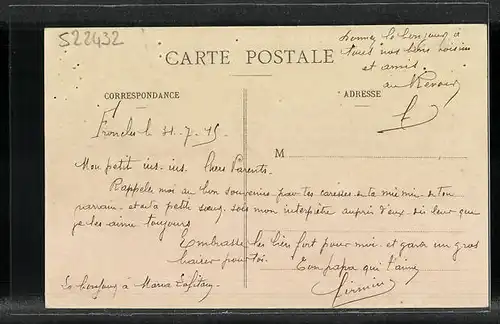 S22432
CARTE POSTALE
Donnez le bonjour à
tous nos bons voisins
et amis.
au Revoir
CORRESPONDANCE
ADRESSE
Froncles le 21-7-15
M
Mon petit Chers Parents.
Rappelle moi au bon souvenir par tes caresses de ta mémé de ton
parrain et de ta petite sœur, sois mon interprète auprès d'eux dis leur que
je les aime toujours
Embrasse les bien fort pour moi et garde un gros
baiser pour toi.
Ton papa qui t'aime
Firmin
Le bonjour à Maria